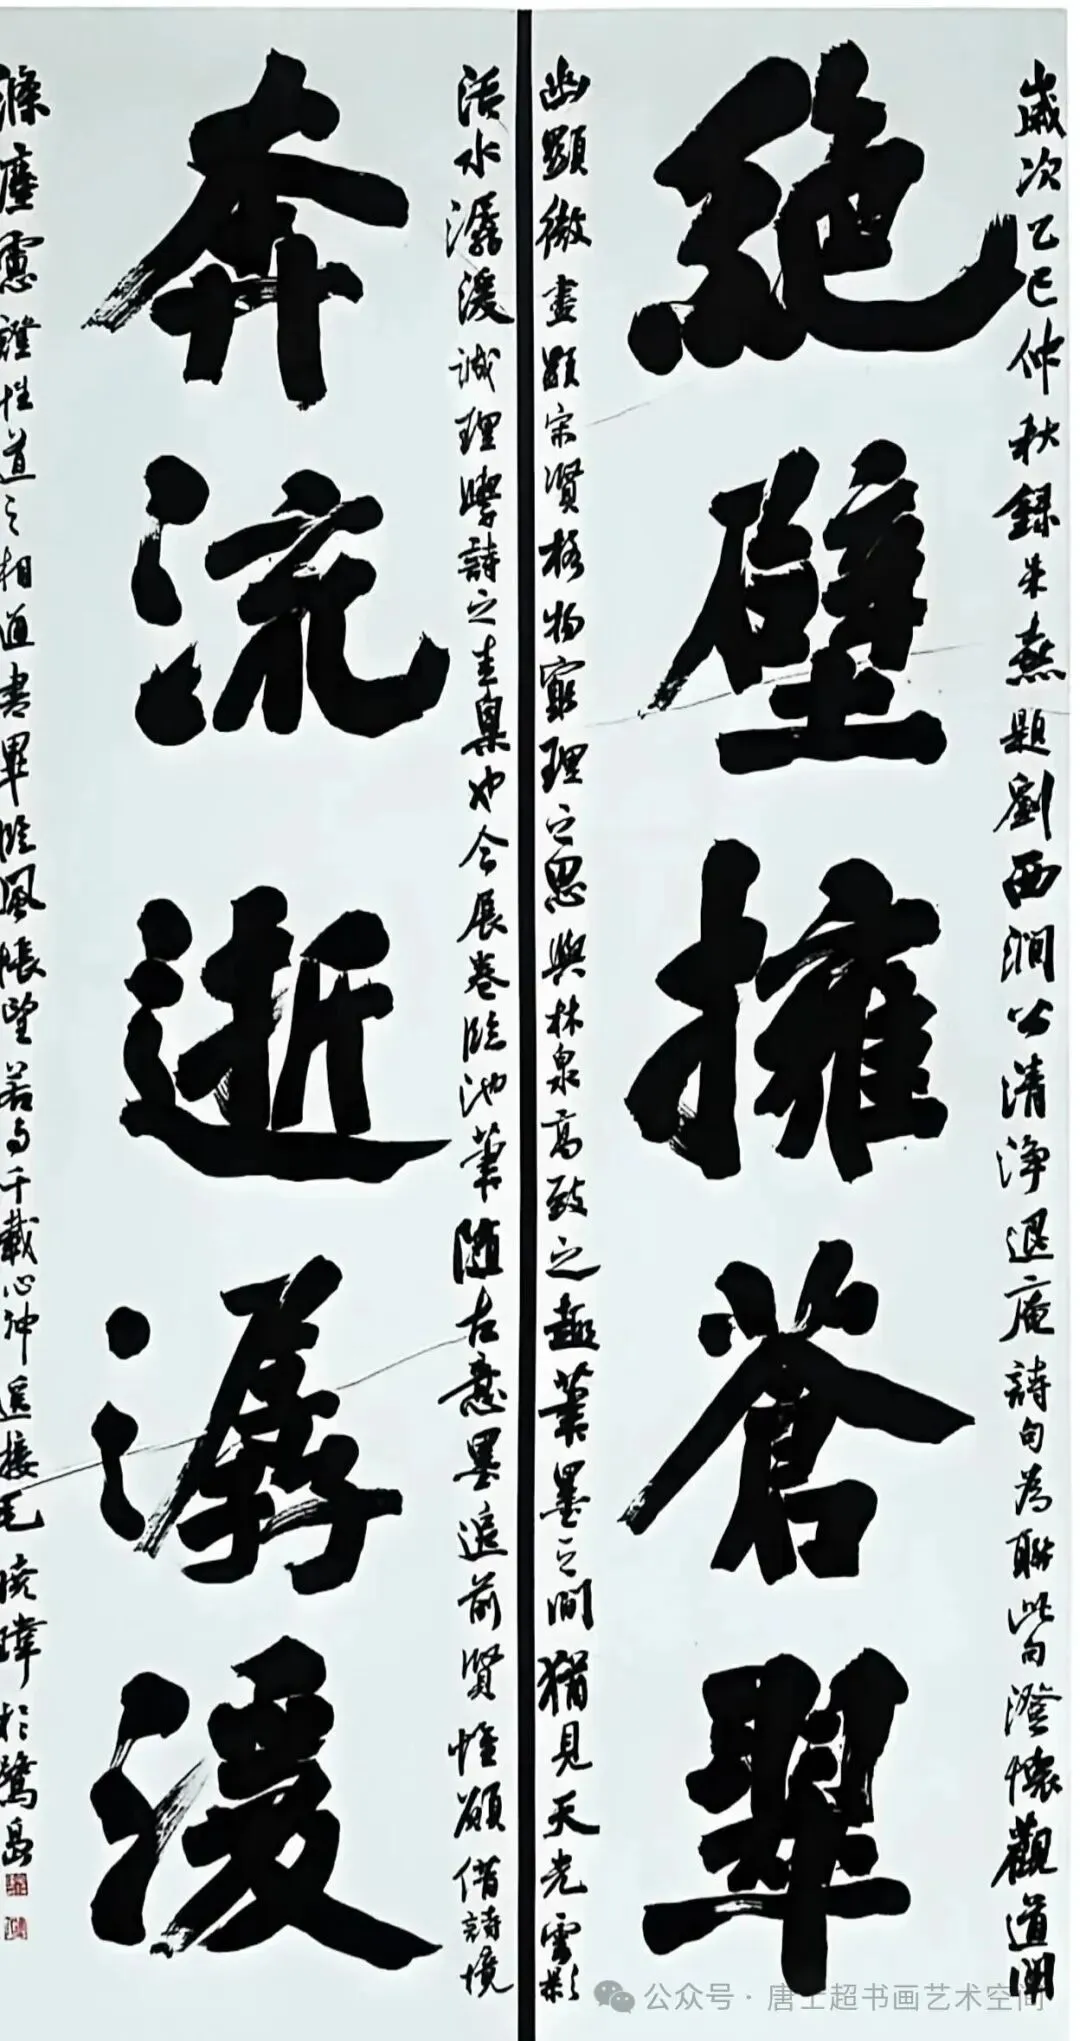 歲次乙巳仲秋錄朱熹題劉西澗公清淨退庵詩句為聯此句澄懷觀道闡
絕壁擁蒼翠
幽顯微盡顯宋賢格物窮理之思與林泉高致之趣筆墨之間猶見天光雲影
活水潺湲誠理學詩之圭臬也今展卷臨池筆隨古意墨追前賢惟願借詩境
奔流逝潺湲
滌塵慮證性道之相道書畢臨風悵望若與千載心神遙接毛曉瑋於鷺島
公众号·唐士超书画艺术空间